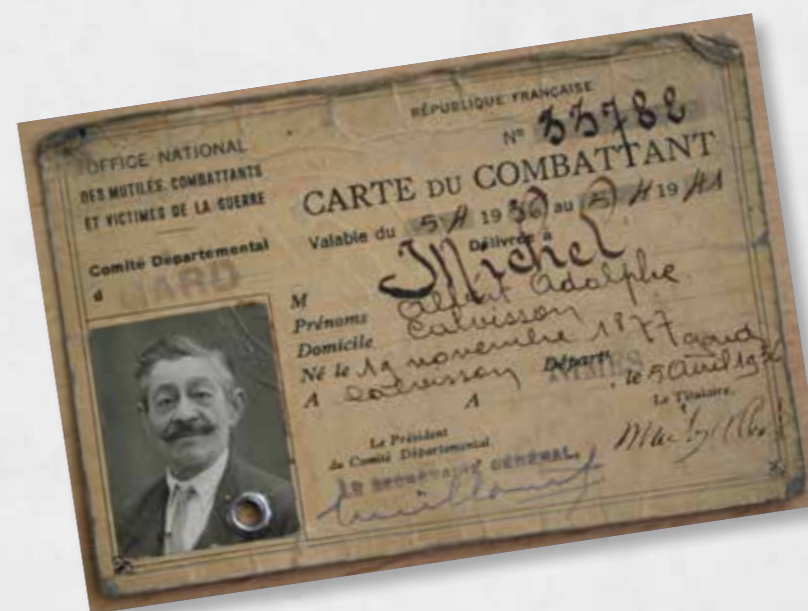 OFFICE NATIONAL
DES MUTILÉS, COMBATTANTS
ET VICTIMES DE LA GUERRE
Comité Départemental
d GARD
RÉPUBLIQUE FRANÇAISE
N° 33782
CARTE DU COMBATTANT
Valable du 5 A 1936 au 5 A 19 41
Délivrée à
M Michel
Prénoms Albert Adolphe
Domicile Calvisson
Né le 19 novembre 1877
A Calvisson Départ' gard
A NIMES, le 5 Avril 1936
Le Président
du Comité Départemental,
LE SECRÉTAIRE GÉNÉRAL,
Le Titulaire,